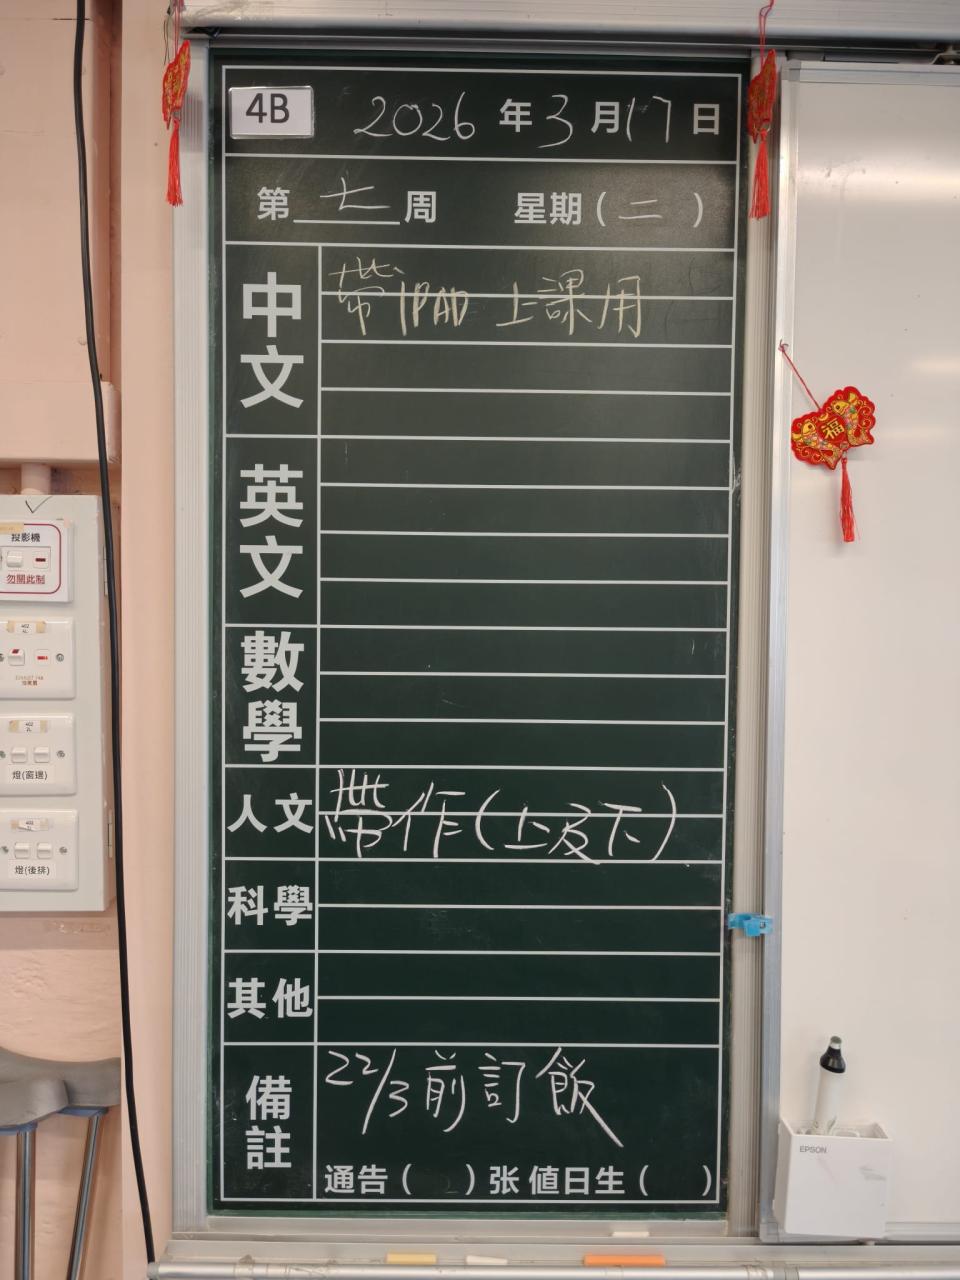 4B 2026年3月17日
第七周 星期(二)
中文 帶iPAD上課用
英文
數學
人文 帶作(上及下)
科學
其他
備註 22/3前訂飯
通告( )张 值日生( )
福
投影機
勿關此制
402
燈(窗邊)
402
燈(後排)
EPSON